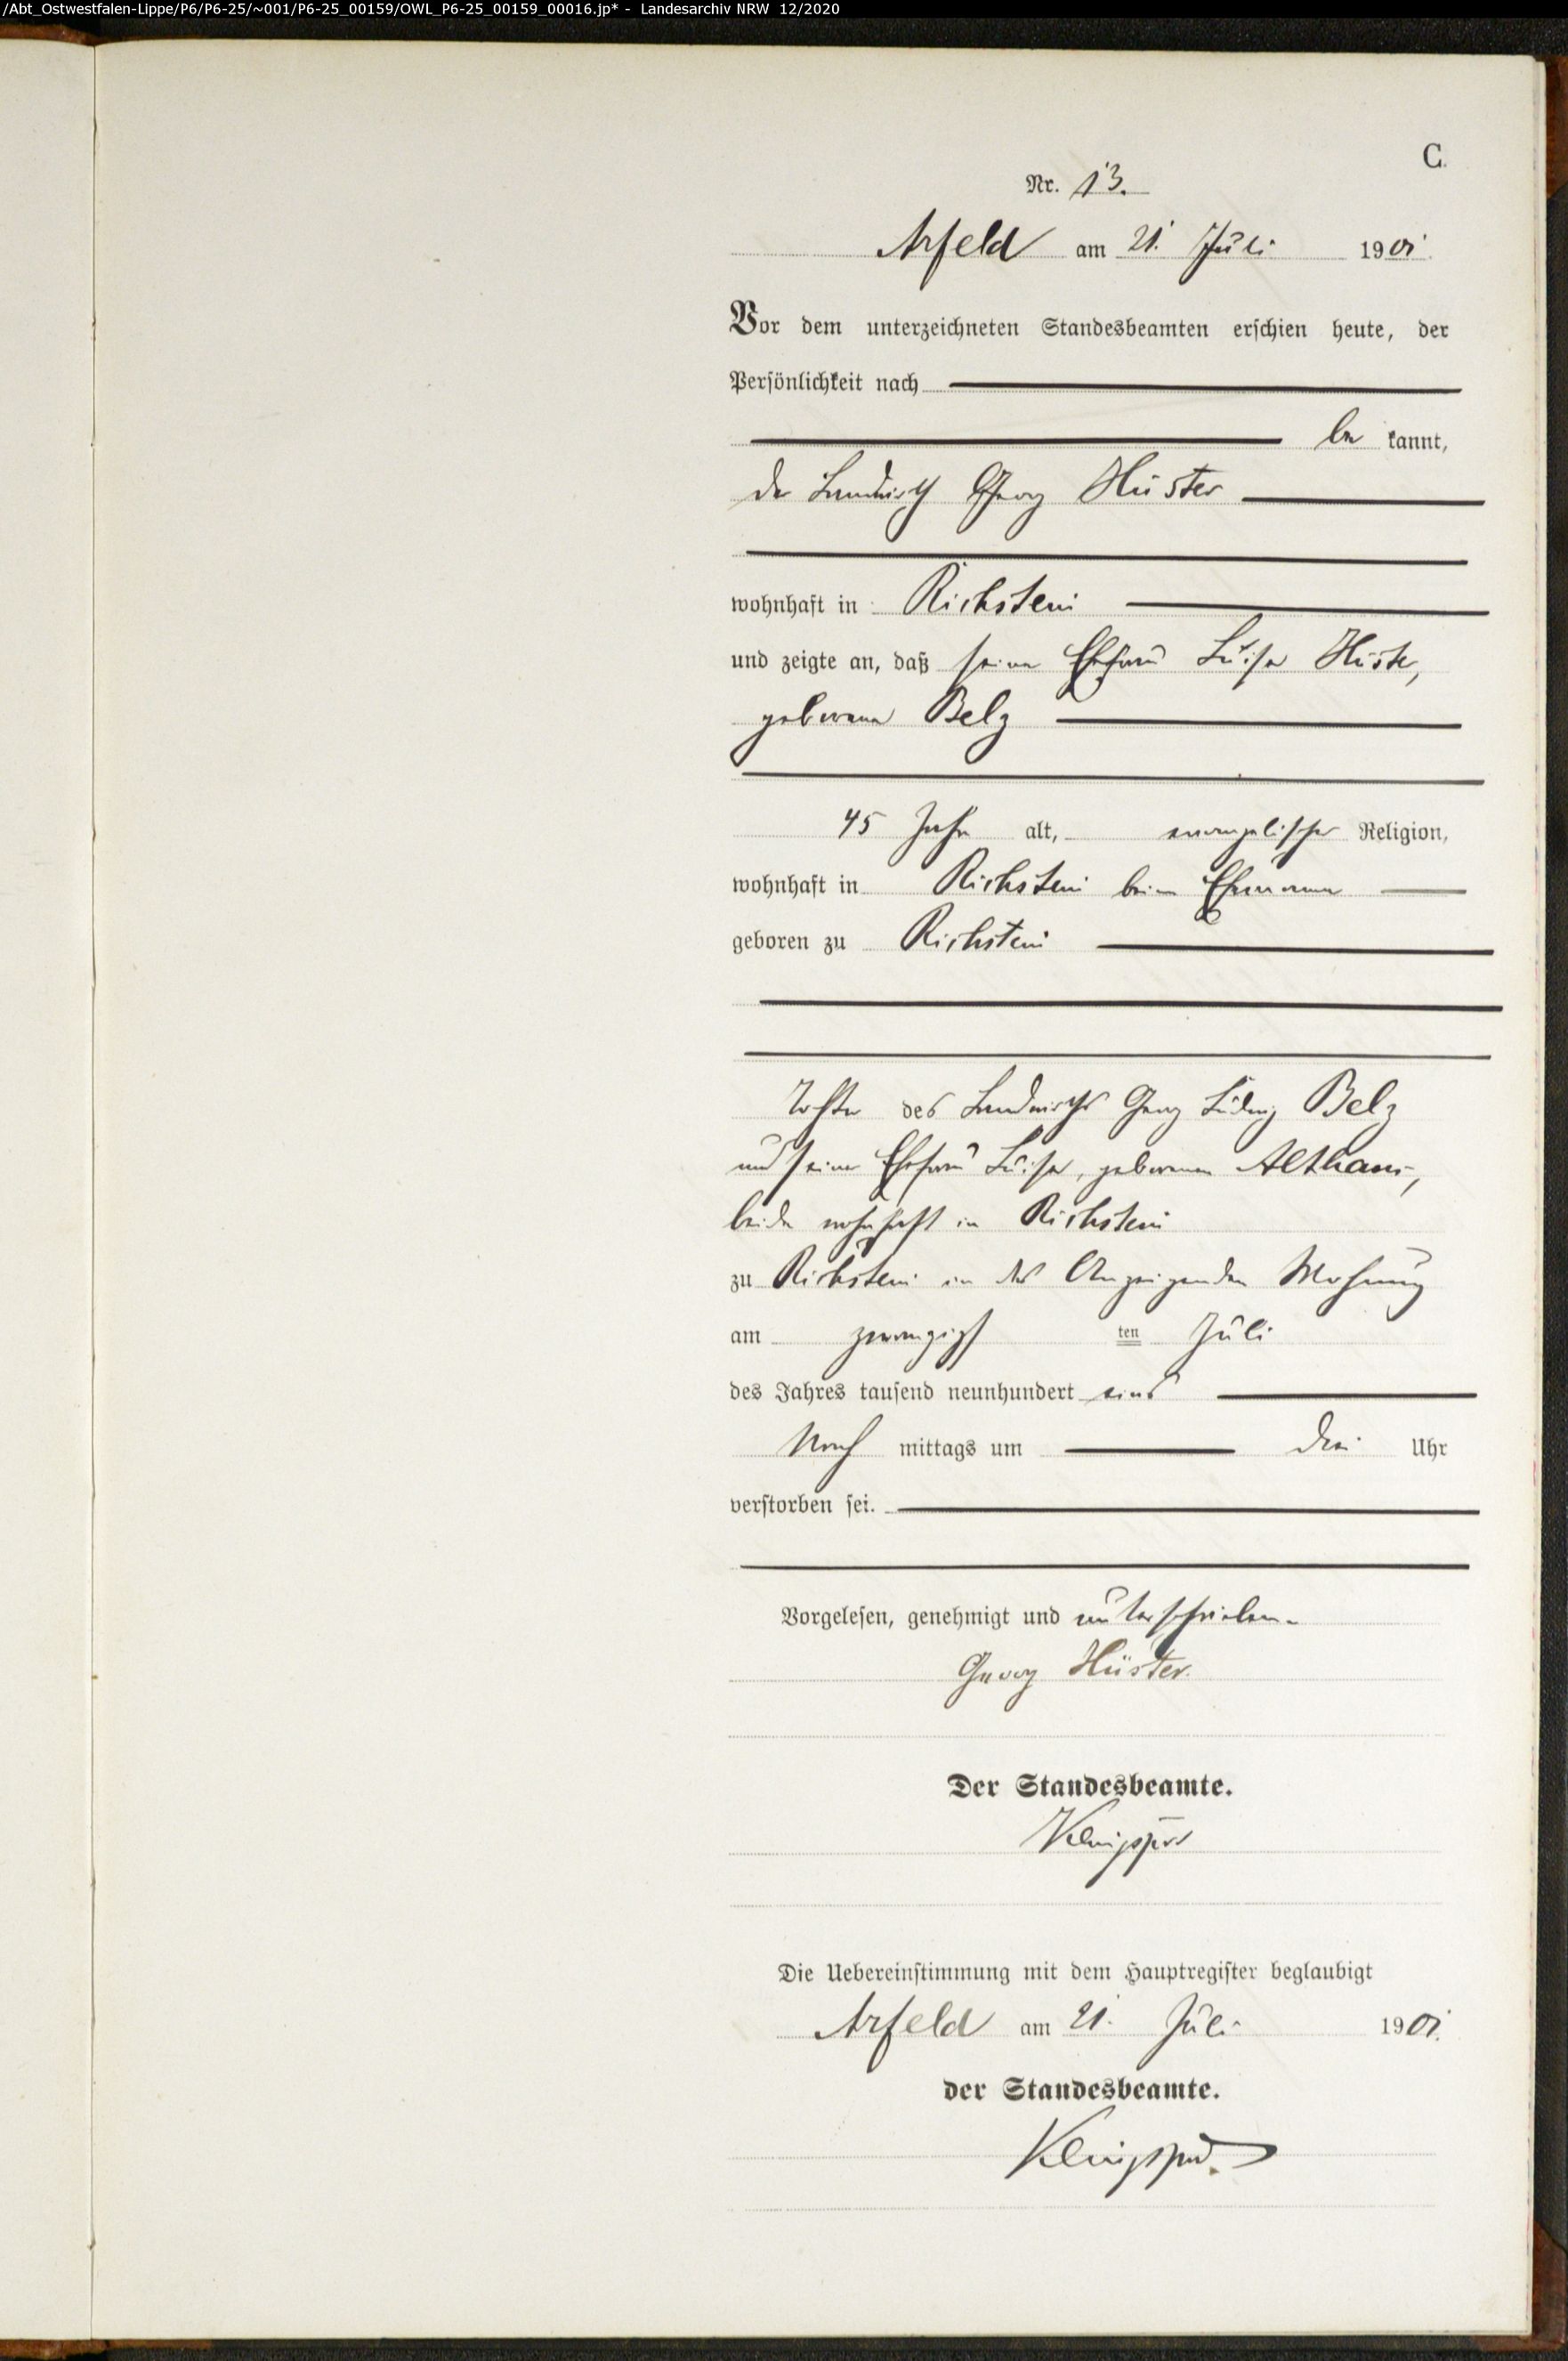 /Abt_Ostwestfalen-Lippe/P6/P6-25/~001/P6-25_00159/OWL_P6-25_00159_00016.jp* - Landesarchiv NRW 12/2020
C.
Nr. 13.
Arfeld am 21. Juli 1901.
Vor dem unterzeichneten Standesbeamten erschien heute, der
Persönlichkeit nach
be kannt,
der Landwirth Georg Hüster
wohnhaft in Richstein
und zeigte an, daß seine Ehefrau Luise Hüster,
geborene Belz
45 Jahre alt, evangelischer Religion,
wohnhaft in Richstein beim Ehemann
geboren zu Richstein
Tochter des Landwirths Georg Ludwig Belz
und seiner Ehefrau Luise, geborenen Althaus,
beide wohnhaft in Richstein
zu Richstein in des Anzeigenden Wohnung
am zwanzigsten Juli
des Jahres tausend neunhundert eins
Nach mittags um drei Uhr
verstorben sei.
Vorgelesen, genehmigt und unterschrieben.
Georg Hüster.
Der Standesbeamte.
Die Uebereinstimmung mit dem Hauptregister beglaubigt
Arfeld am 21. Juli 1901.
der Standesbeamte.